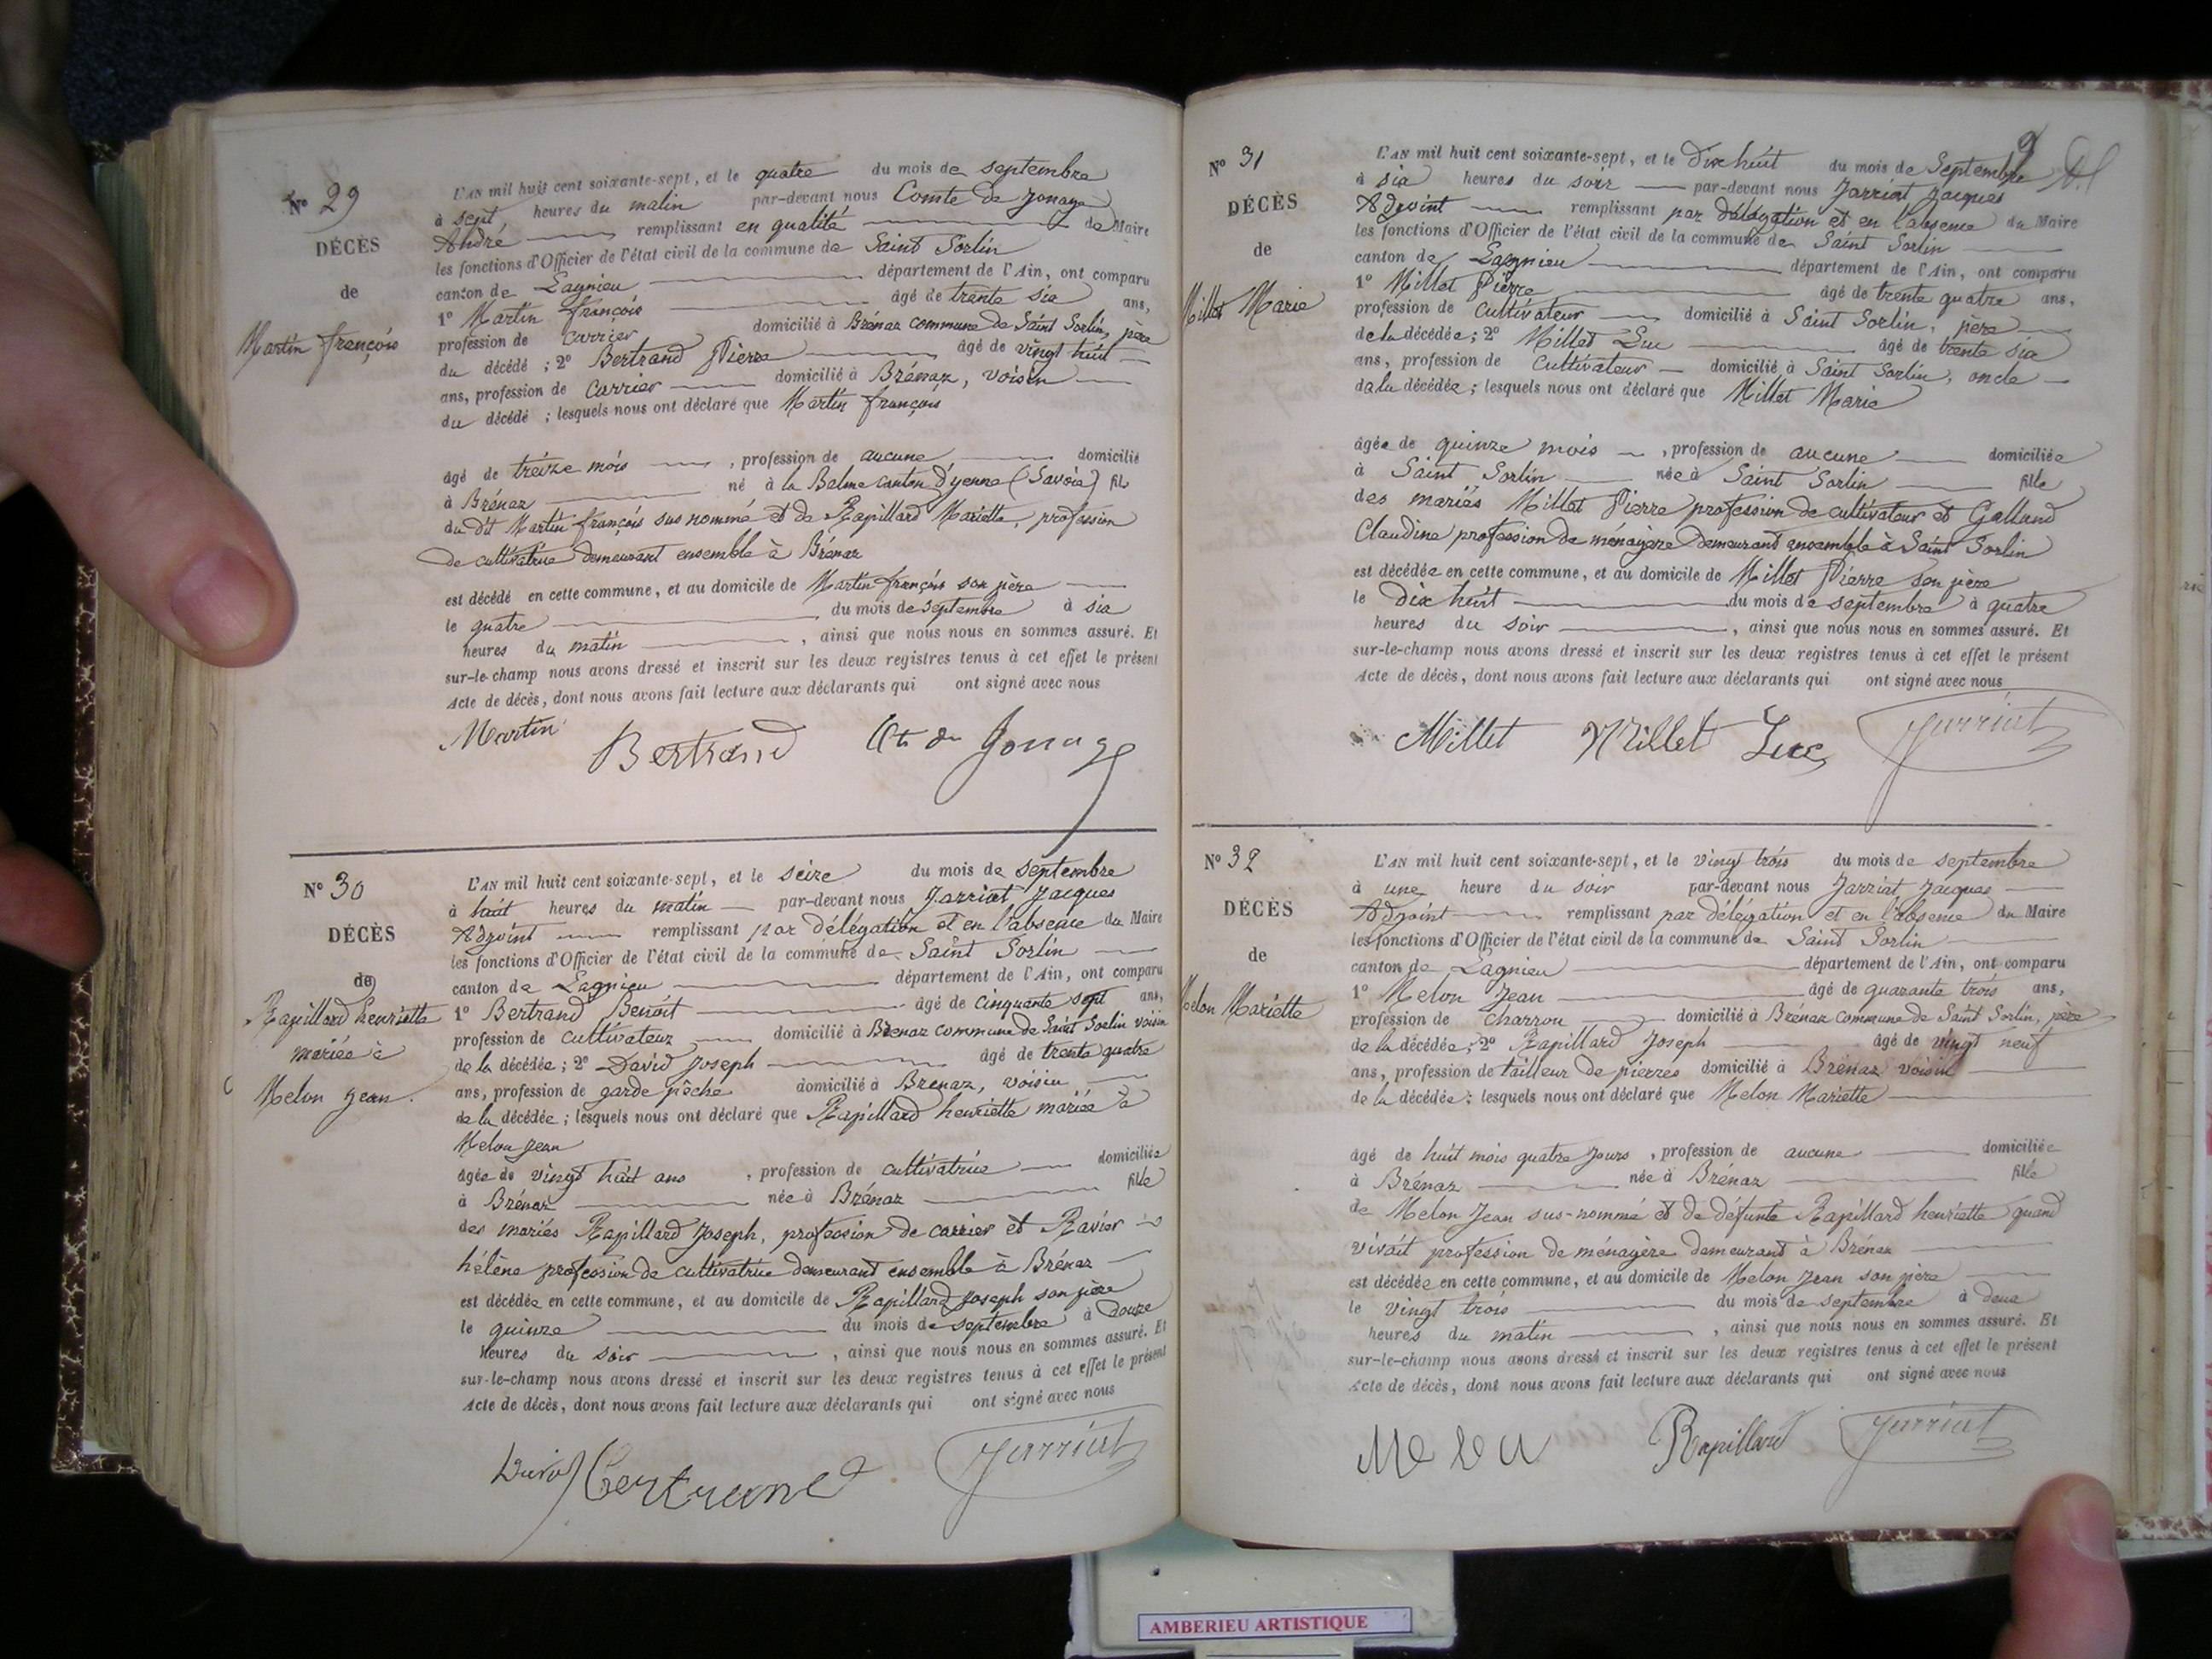 Nº 29
DÉCÈS
de
Martin françois
L'AN mil huit cent soixante-sept, et le quatre du mois de septembre
à sept heures du matin par-devant nous Comte de Jonage
André remplissant en qualité de Maire
les fonctions d'Officier de l'état civil de la commune de Saint Sorlin
canton de Lagnieu département de l'Ain, ont comparu
1º Martin françois âgé de trente six ans,
profession de carrier domicilié à Brénaz commune de Saint Sorlin, père
du décédé ; 2º Bertrand Pierre âgé de vingt huit
ans, profession de carrier domicilié à Brénaz, voisin
du décédé ; lesquels nous ont déclaré que Martin françois
âgé de treize mois , profession de aucune domicilié
à Brénaz né à la Balme canton d'yenne (Savoie) fils
du dit Martin françois sus nommé et de Rapillard Mariette, profession
de cultivatrice demeurant ensemble à Brénaz
est décédé en cette commune, et au domicile de Martin françois son père
le quatre du mois de septembre à six
heures du matin , ainsi que nous nous en sommes assuré. Et
sur-le-champ nous avons dressé et inscrit sur les deux registres tenus à cet effet le présent
Acte de décès, dont nous avons fait lecture aux déclarants qui ont signé avec nous
Martin Bertrand Cte de Jonage
Nº 30
DÉCÈS
de
Rapillard henriette
mariée à
Melon Jean.
L'AN mil huit cent soixante-sept, et le seize du mois de septembre
à huit heures du matin par-devant nous Jarriat Jacques
Adjoint remplissant par délégation et en l'absence du Maire
les fonctions d'Officier de l'état civil de la commune de Saint Sorlin
canton de Lagnieu département de l'Ain, ont comparu
1º Bertrand Benoit âgé de cinquante sept ans,
profession de cultivateur domicilié à Brénaz commune de Saint Sorlin voisin
de la décédée ; 2º David Joseph âgé de trente quatre
ans, profession de garde pêche domicilié à Brénaz, voisin
de la décédée ; lesquels nous ont déclaré que Rapillard henriette mariée à
Melon Jean
âgée de vingt huit ans , profession de cultivatrice domiciliée
à Brénaz née à Brénaz fille
des mariés Rapillard Joseph, profession de carrier et Ravier
hélène profession de cultivatrice demeurant ensemble à Brénaz
est décédée en cette commune, et au domicile de Rapillard Joseph son père
le quinze du mois de septembre à douze
heures du soir , ainsi que nous nous en sommes assuré. Et
sur-le-champ nous avons dressé et inscrit sur les deux registres tenus à cet effet le présent
Acte de décès, dont nous avons fait lecture aux déclarants qui ont signé avec nous
David Bertrand Jarriat
9
Nº 31
DÉCÈS
de
Millet Marie
L'AN mil huit cent soixante-sept, et le dix huit du mois de Septembre
à six heures du soir par-devant nous Jarriat Jacques
Adjoint remplissant par délégation et en l'absence du Maire
les fonctions d'Officier de l'état civil de la commune de Saint Sorlin
canton de Lagnieu département de l'Ain, ont comparu
1º Millet Pierre âgé de trente quatre ans,
profession de cultivateur domicilié à Saint Sorlin, père
de la décédée ; 2º Millet Luc âgé de trente six
ans, profession de cultivateur domicilié à Saint Sorlin, oncle
de la décédée ; lesquels nous ont déclaré que Millet Marie
âgée de quinze mois , profession de aucune domiciliée
à Saint Sorlin née à Saint Sorlin fille
des mariés Millet Pierre profession de cultivateur et Galland
Claudine profession de ménagère demeurant ensemble à Saint Sorlin
est décédée en cette commune, et au domicile de Millet Pierre son père
le dix huit du mois de septembre à quatre
heures du soir , ainsi que nous nous en sommes assuré. Et
sur-le-champ nous avons dressé et inscrit sur les deux registres tenus à cet effet le présent
Acte de décès, dont nous avons fait lecture aux déclarants qui ont signé avec nous
Millet Millet Luc Jarriat
Nº 32
DÉCÈS
de
Melon Mariette
L'AN mil huit cent soixante-sept, et le vingt trois du mois de septembre
à une heure du soir par-devant nous Jarriat Jacques
Adjoint remplissant par délégation et en l'absence du Maire
les fonctions d'Officier de l'état civil de la commune de Saint Sorlin
canton de Lagnieu département de l'Ain, ont comparu
1º Melon Jean âgé de quarante trois ans,
profession de charron domicilié à Brénaz commune de Saint Sorlin, père
de la décédée ; 2º Rapillard Joseph âgé de vingt neuf
ans, profession de tailleur de pierres domicilié à Brénaz voisin
de la décédée ; lesquels nous ont déclaré que Melon Mariette
âgé de huit mois quatre jours , profession de aucune domiciliée
à Brénaz née à Brénaz fille
de Melon Jean sus-nommé et de défunte Rapillard henriette quand
vivait profession de ménagère demeurant à Brénaz
est décédée en cette commune, et au domicile de Melon Jean son père
le vingt trois du mois de septembre à deux
heures du matin , ainsi que nous nous en sommes assuré. Et
sur-le-champ nous avons dressé et inscrit sur les deux registres tenus à cet effet le présent
Acte de décès, dont nous avons fait lecture aux déclarants qui ont signé avec nous
Melon Rapillard Jarriat
AMBERIEU ARTISTIQUE